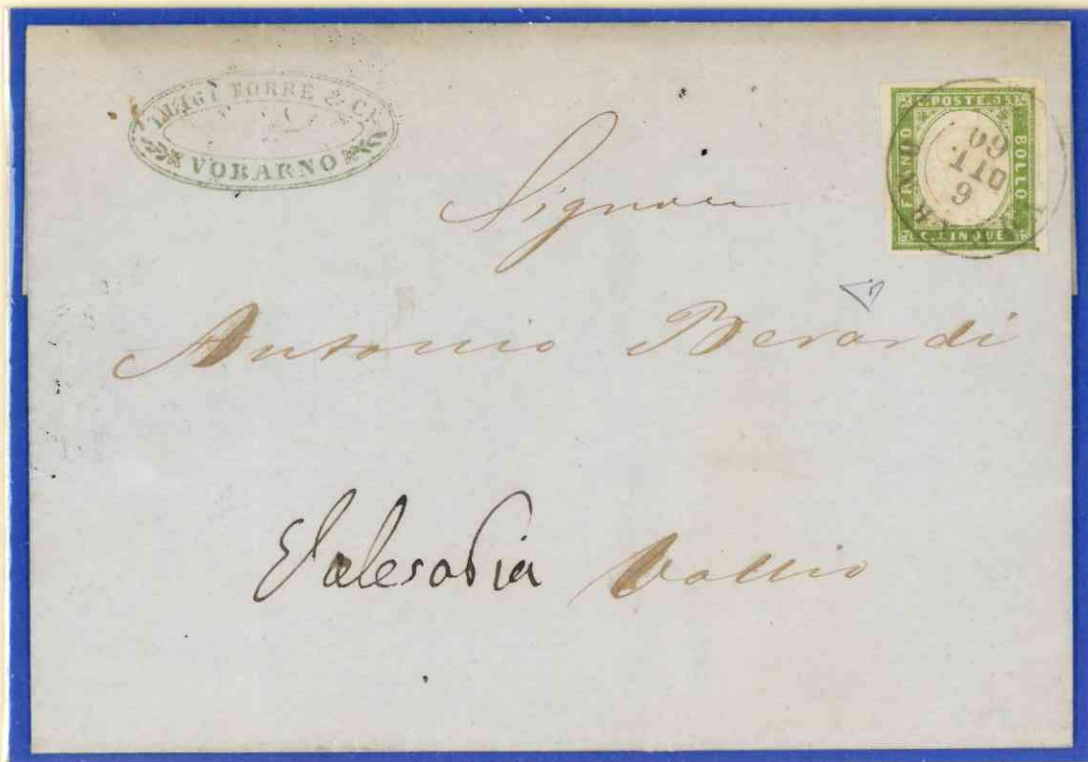 LUIGI TORRE & C.
VOBARNO
C. POSTE. 5
FRANCO
BOLLO
C. CINQUE
6
OTT
60
Signor
Antonio Berardi
Vallio